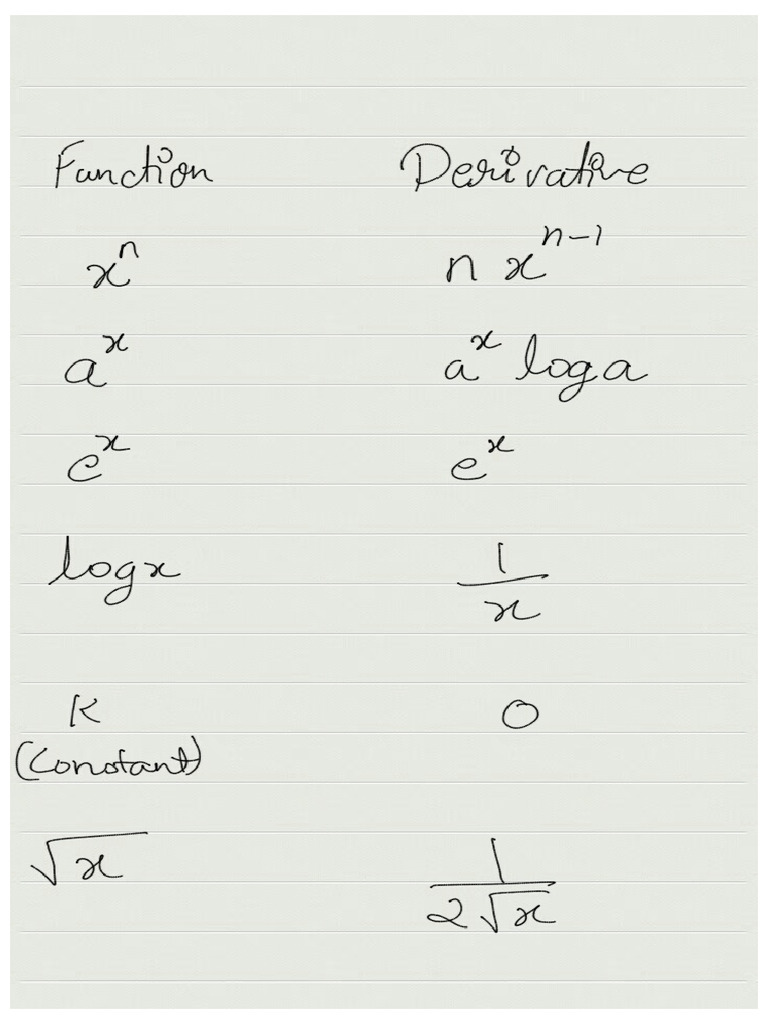 Function Derivative
xⁿ n xⁿ⁻¹
aˣ aˣ log a
eˣ eˣ
log x 1/x
K 0
(Constant)
√x 1/(2√x)